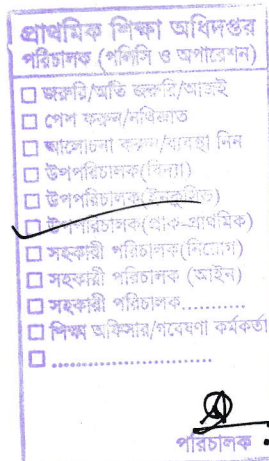 প্রাথমিক শিক্ষা অধিদপ্তর
পরিচালক (পলিসি ও অপারেশন)
☐ জরুরি/অতি জরুরি/আজই
☐ পেশ করুন/নথিজাত
☐ আলোচনা করুন/ব্যবস্থা নিন
☐ উপপরিচালক(বিদ্যা)
☐ উপপরিচালক(ইনক্লুসিভ)
☐ উপপরিচালক(প্রাক-প্রাথমিক)
☐ সহকারী পরিচালক(নিয়োগ)
☐ সহকারী পরিচালক (আইন)
☐ সহকারী পরিচালক...........
☐ শিক্ষা অফিসার/গবেষণা কর্মকর্তা
☐ ......................
পরিচালক